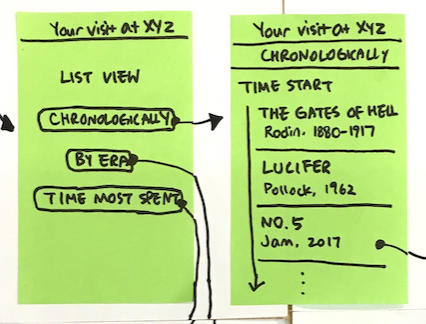 Your visit at XYZ
LIST VIEW
CHRONOLOGICALLY
BY ERA
TIME MOST SPENT
Your visit at XYZ
CHRONOLOGICALLY
TIME START
THE GATES OF HELL
Rodin. 1880-1917
LUCIFER
Pollock, 1962
NO.5
Jam, 2017